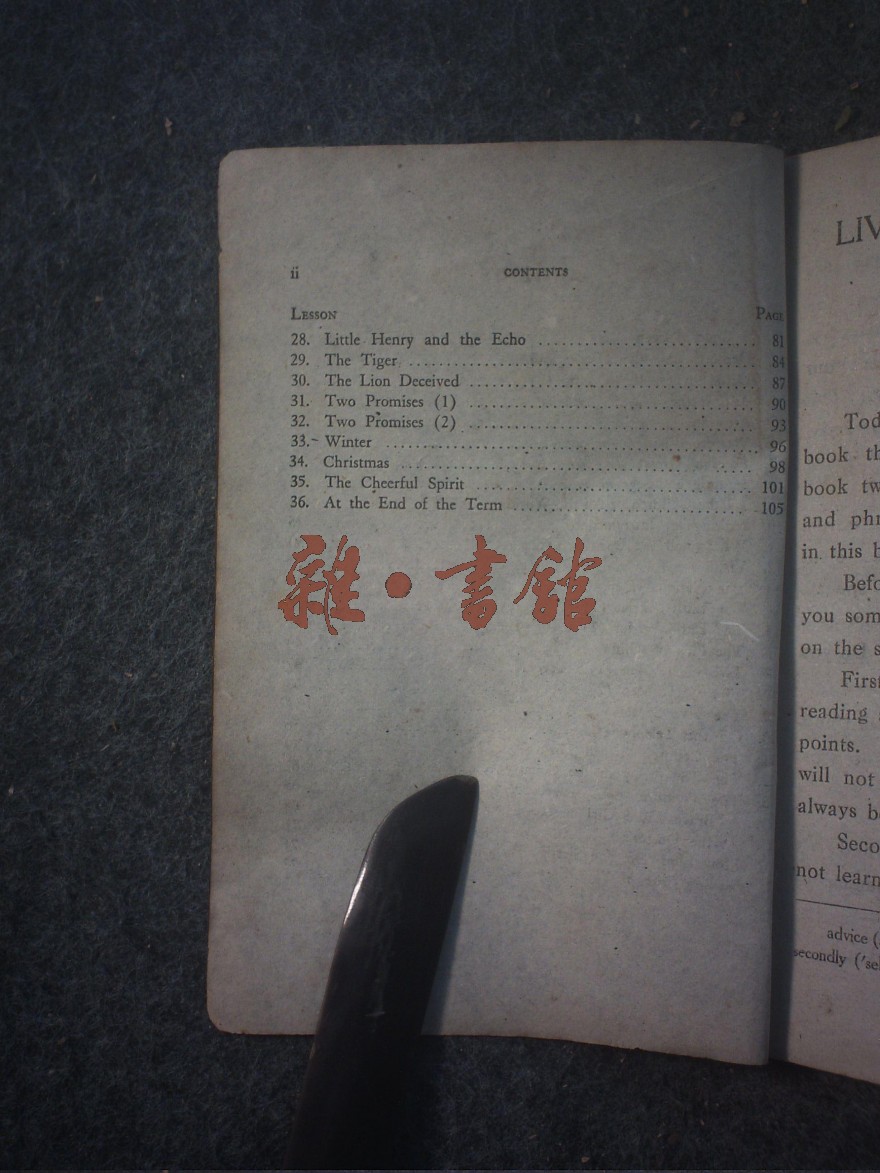 ii CONTENTS
LESSON PAGE
28. Little Henry and the Echo 81
29. The Tiger 84
30. The Lion Deceived 87
31. Two Promises (1) 90
32. Two Promises (2) 93
33. Winter 96
34. Christmas 98
35. The Cheerful Spirit 101
36. At the End of the Term 105
雜·書館
LIV
Tod
book th
book tw
and phr
in this b
Befo
you som
on the s
First
reading
points.
will not
always b
Seco
not learn
advice (
secondly ('se